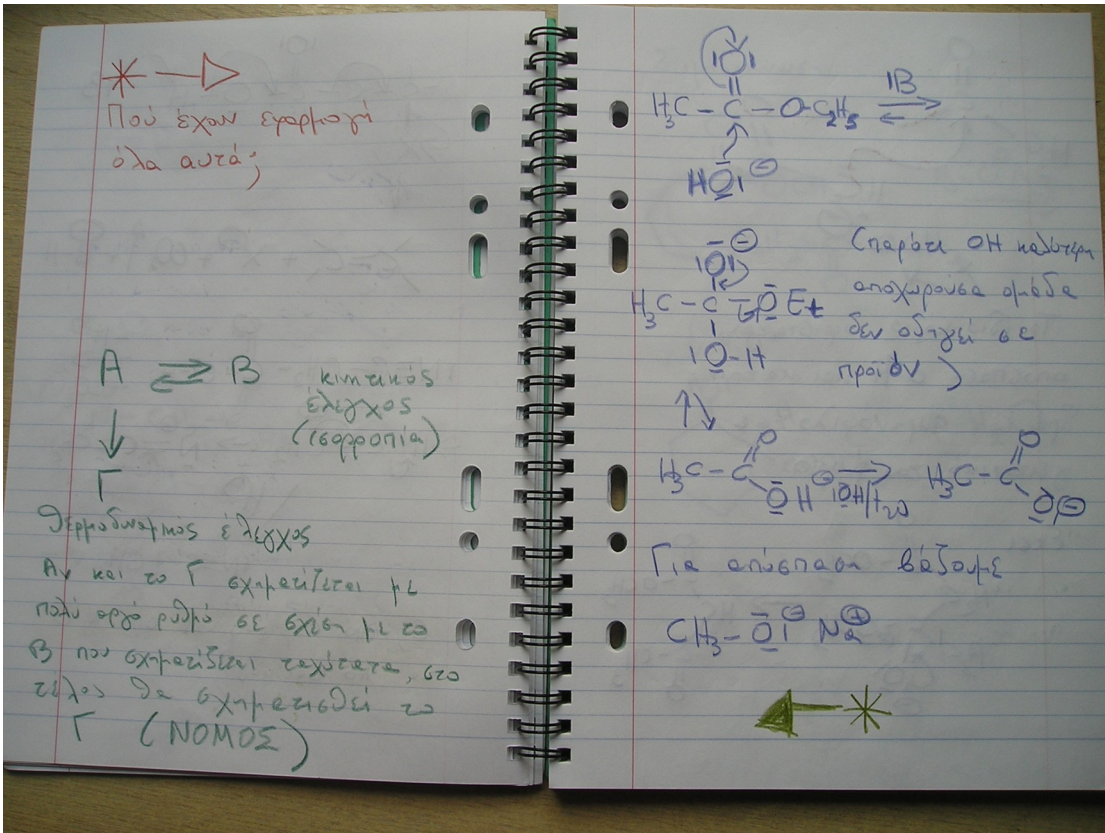 Πού έχουν εφαρμογή
όλα αυτά;
A ⇌ B
κινητικός
έλεγχος
(ισορροπία)
↓
Γ
Θερμοδυναμικός έλεγχος
Αν και το Γ σχηματίζεται με
πολύ αργό ρυθμό σε σχέση με το
Β που σχηματίζεται ταχύτατα, στο
τέλος θα σχηματισθεί το
Γ (ΝΟΜΟΣ)
O
H₃C – C – O – C₂H₅ ⇌
HO⊖
O⊖
H₃C – C – O Et
O – H
(παρότι OH καλύτερη
αποχωρούσα ομάδα
δεν οδηγεί σε
προϊόν)
O O
H₃C – C ⊖OH/H₂O → H₃C – C
O H O⊖
Για απόσπαση βάζουμε
CH₃ – O⊖ Na⊕